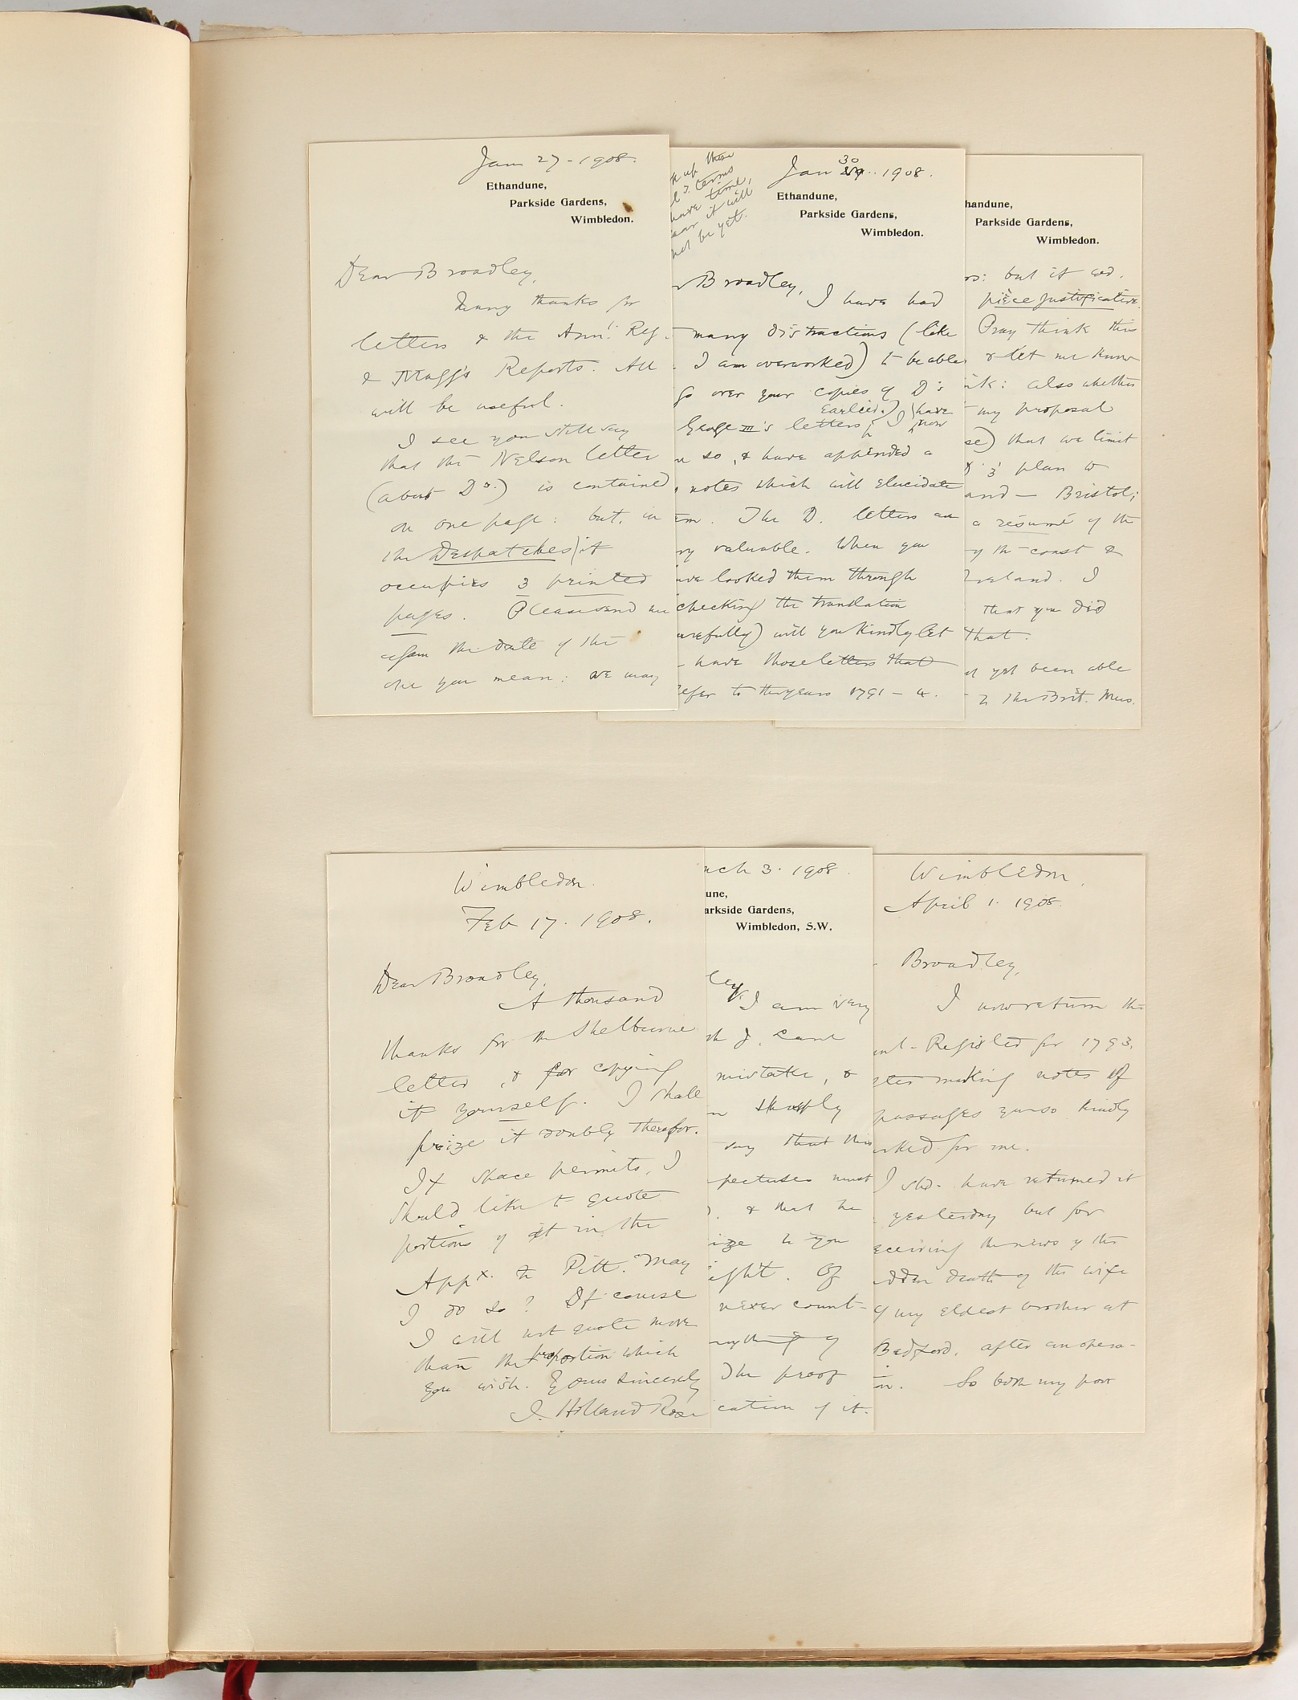 Jan 27 - 1908.
Ethandune,
Parkside Gardens,
Wimbledon.
Dear Broadley,
Many thanks for
letters & the Ann! Reg.
& Maggs's Reports. All
will be useful.
I see you still say
that the Nelson letter
(about Dz.) is contained
on one page: but, in
the Despatches, it
occupies 3 printed
pages. Please send me
again the date of the
one you mean: we may
up these
terms
have time,
it will
not be yet.
Jan 30 1908.
Ethandune,
Parkside Gardens,
Wimbledon.
Broadley, I have had
many distractions (like
I am overworked) to be able
go over your copies of D's
earlier) have
George III's letters, I now
so, & have appended a
notes which will elucidate
The D. letters are
valuable. When you
looked them through
checking the translation
carefully) will you kindly let
have those letters that
refer to the years 1791 - 4.
handune,
Parkside Gardens,
Wimbledon.
but if wd.
pièce justificative.
Pray think this
& let me know
also whether
my proposal
that we limit
3 plan to
and — Bristol;
a résumé of the
the coast &
Ireland. I
that you did
that.
yet been able
to the Brit. Mus.
Wimbledon.
Feb 17. 1908.
Dear Broadley,
A thousand
thanks for the Shelburne
letter, & for copying
it yourself. I shall
prize it doubly therefor.
If space permits, I
should like to quote
portions of it in the
Appx. to Pitt. May
I do so? Of course
I will not quote more
than the proportion which
you wish. Yours sincerely
J. Holland Rose
rch 3. 1908.
une,
arkside Gardens,
Wimbledon, S.W.
ley, I am very
mistake, &
say that this
pectuses must
& that he
to you
Of
never count-
anything of
The proof
cation of it.
Wimbledon,
April 1. 1908
Broadley,
I now return the
Register for 1793,
after making notes of
passages you so kindly
marked for me.
I shd. have returned it
yesterday but for
receiving the news of the
sudden death of the wife
of my eldest brother at
Bedford, after an opera-
So both my poor